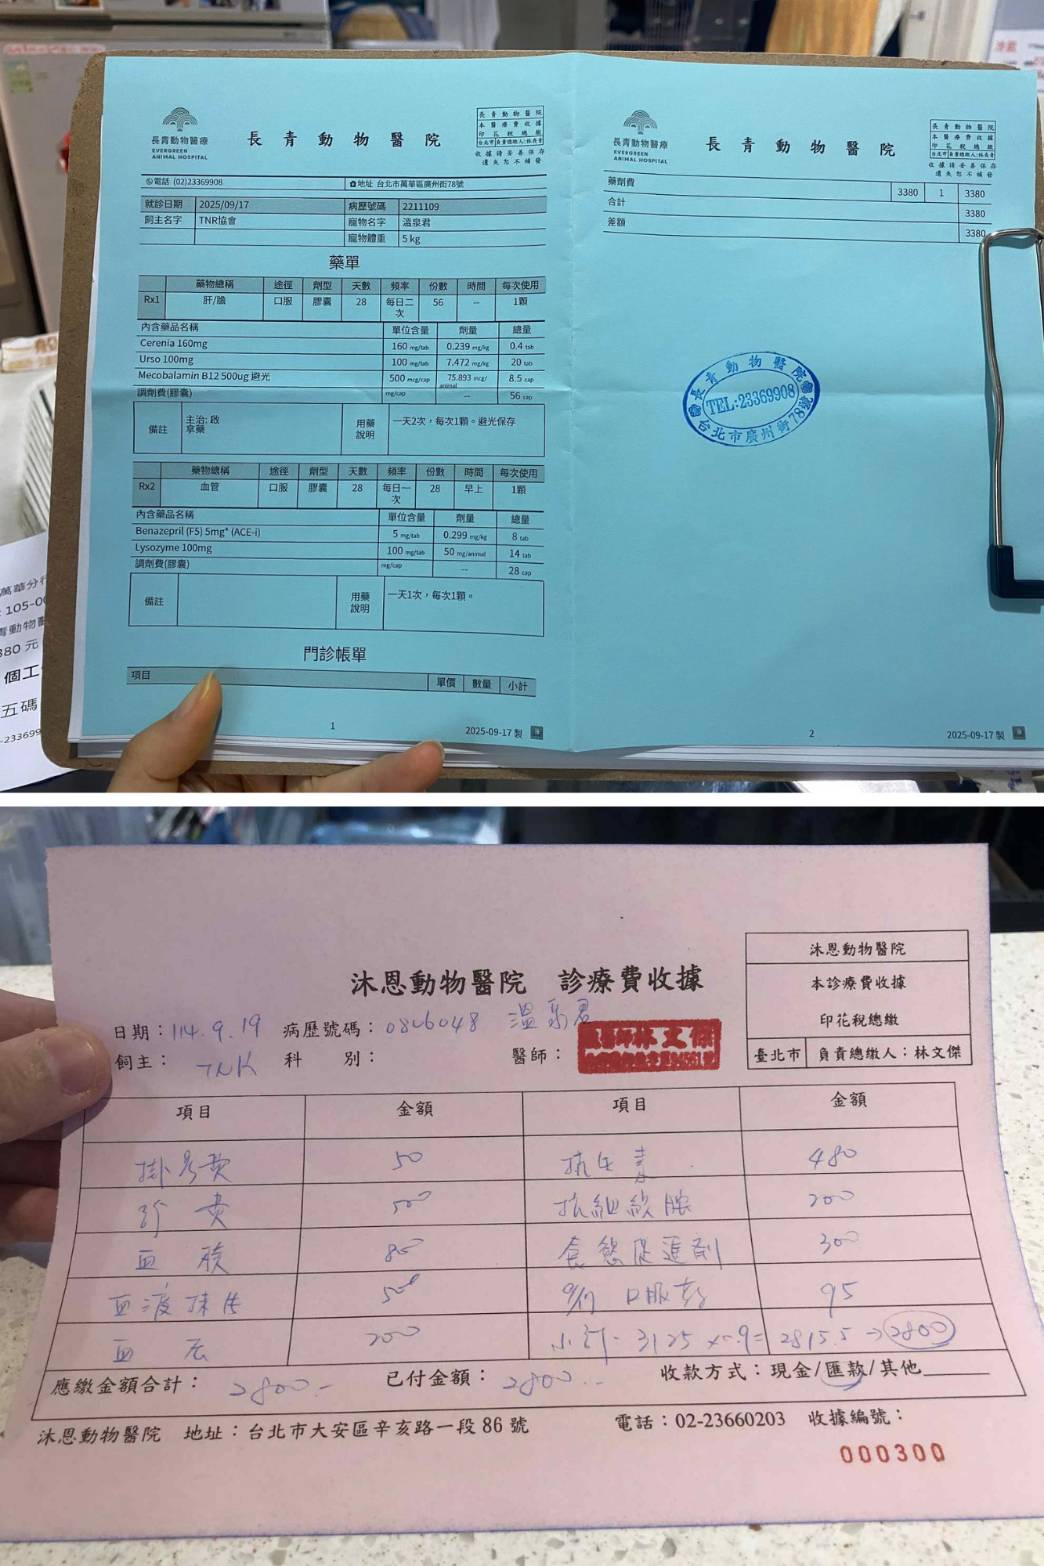 長青動物醫療
EVERGREEN
ANIMAL HOSPITAL
長青動物醫院
長青動物醫院
本醫療費收據
印花稅總繳
台北市 負責總繳人:林長青
收據請妥善保存
遺失恕不補發
電話 (02)23369908 地址 台北市萬華區廣州街78號
就診日期 2025/09/17 病歷號碼 2211109
飼主名字 TNR協會 寵物名字 溫泉君
寵物體重 5 kg
藥單
藥物總稱 途徑 劑型 天數 頻率 份數 時間 每次使用
Rx1 肝/膽 口服 膠囊 28 每日二次 56 -- 1顆
內含藥品名稱 單位含量 劑量 總量
Cerenia 160mg 160 mg/tab 0.239 mg/kg 0.4 tab
Urso 100mg 100 mg/tab 7.472 mg/kg 20 tab
Mecobalamin B12 500ug 避光 500 mcg/cap 75.893 mcg/animal 8.5 cap
調劑費(膠囊) mg/cap -- 56 cap
備註 主治: 啟
拿藥
用藥說明 一天2次,每次1顆。避光保存
藥物總稱 途徑 劑型 天數 頻率 份數 時間 每次使用
Rx2 血管 口服 膠囊 28 每日一次 28 早上 1顆
內含藥品名稱 單位含量 劑量 總量
Benazepril (F5) 5mg* (ACE-i) 5 mg/tab 0.299 mg/kg 8 tab
Lysozyme 100mg 100 mg/tab 50 mg/animal 14 tab
調劑費(膠囊) mg/cap -- 28 cap
備註 用藥說明 一天1次,每次1顆。
門診帳單
項目 單價 數量 小計
1 2025-09-17 製
長青動物醫療
EVERGREEN
ANIMAL HOSPITAL
長青動物醫院
長青動物醫院
本醫療費收據
印花稅總繳
台北市 負責總繳人:林長青
收據請妥善保存
遺失恕不補發
藥劑費 3380 1 3380
合計 3380
差額 3380
長青動物醫院
TEL:23369908
台北市廣州街78號
2 2025-09-17 製
萬華分行
105-00
380 元
個工
五碼
-233699
沐恩動物醫院 診療費收據
沐恩動物醫院
本診療費收據
印花稅總繳
臺北市 負責總繳人:林文傑
日期:114.9.19 病歷號碼:0806048 溫泉君
飼主:TNR 科別: 醫師: 獸醫師林文傑
項目 金額 項目 金額
掛号費 50 抗生素 480
診費 500 抗組織胺 200
血檢 800 食慾促進劑 300
血液抹片 500 口服藥 95
血压 200 小計 3125 × 0.9 = 2815.5 → 2800
應繳金額合計:2800.- 已付金額:2800.- 收款方式:現金/匯款/其他
沐恩動物醫院 地址:台北市大安區辛亥路一段86號 電話:02-23660203 收據編號:
000300